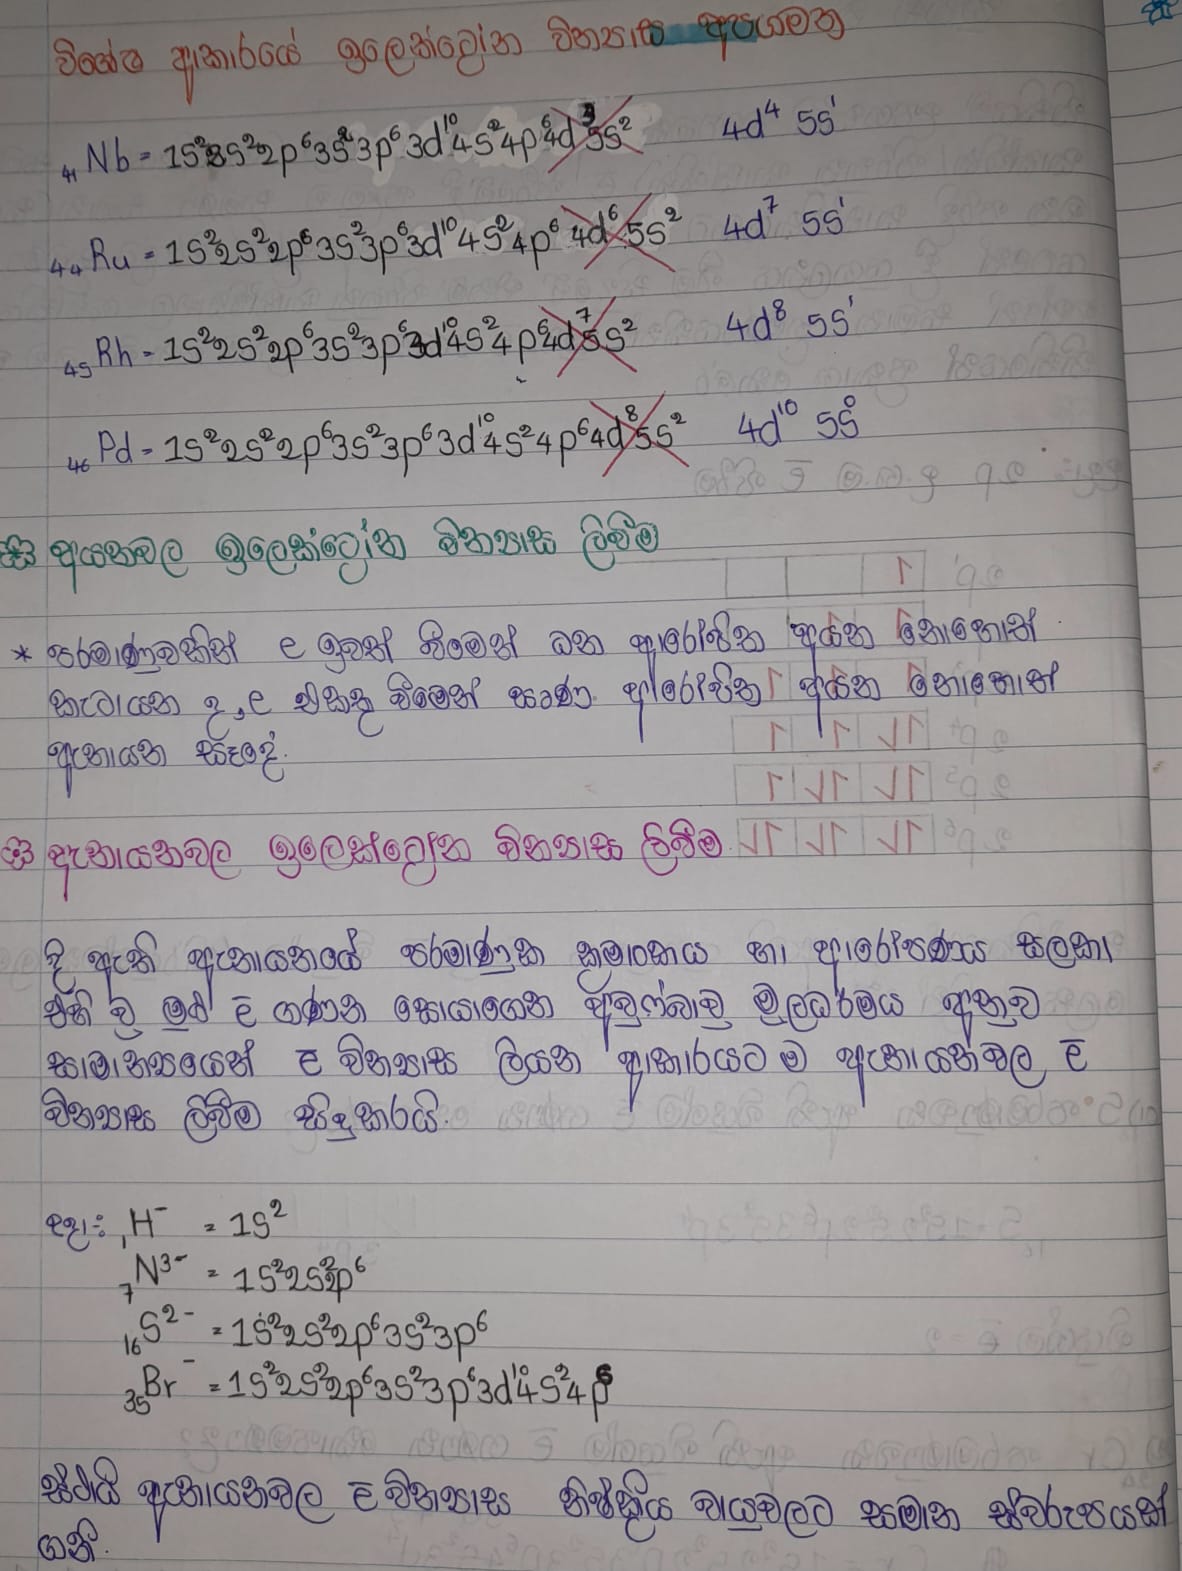 විශේෂ ආකාරයේ ඉලෙක්ට්‍රෝන වින්‍යාස අපගමන
₄₁Nb = 1s²2s²2p⁶3s²3p⁶3d¹⁰4s²4p⁶4d³5s² 4d⁴ 5s¹
₄₄Ru = 1s²2s²2p⁶3s²3p⁶3d¹⁰4s²4p⁶ 4d⁶5s² 4d⁷ 5s¹
₄₅Rh = 1s²2s²2p⁶3s²3p⁶3d¹⁰4s²4p⁶4d⁷5s² 4d⁸ 5s¹
₄₆Pd = 1s²2s²2p⁶3s²3p⁶3d¹⁰4s²4p⁶4d⁸5s² 4d¹⁰ 5s⁰
අයනවල ඉලෙක්ට්‍රෝන වින්‍යාස ලිවීම
* පරමාණුවකින් e ඉවත් වීමෙන් ධන ආරෝපිත අයන නොහොත්
කැටායන ද, e එකතු වීමෙන් සෘණ ආරෝපිත අයන නොහොත්
ඇනායන සෑදේ.
ඇනායනවල ඉලෙක්ට්‍රෝන වින්‍යාස ලිවීම
දී ඇති ඇනායනයේ පරමාණුක ක්‍රමාංකය හා ආරෝපණය සලකා
එහි වූ මුළු e̅ ගණන සොයාගෙන අවුෆ්බාවු මූලධර්මය අනුව
සාමාන්‍යයෙන් e̅ වින්‍යාස ලියන ආකාරයට ම ඇනායනවල e̅
වින්‍යාස ලිවීම සිදුකරයි.
උදා: ₁H⁻ = 1s²
₇N³⁻ = 1s²2s²2p⁶
₁₆S²⁻ = 1s²2s²2p⁶3s²3p⁶
₃₅Br⁻ = 1s²2s²2p⁶3s²3p⁶3d¹⁰4s²4p⁶
ස්ථායී ඇනායනවල e̅ වින්‍යාස නිෂ්ක්‍රීය වායුවලට සමාන ස්වරූපයක්
ගනී.